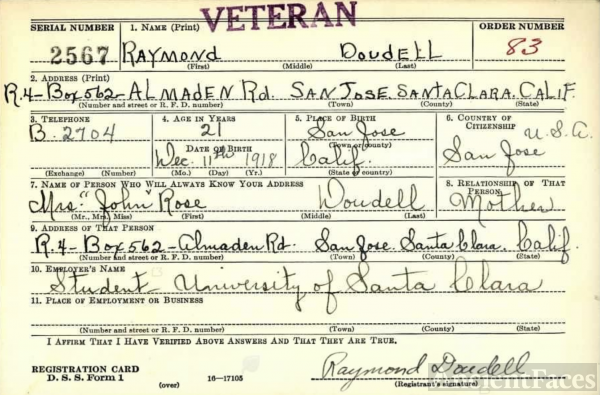 VETERAN
SERIAL NUMBER 1. NAME (Print) ORDER NUMBER
2567 RAYMOND DOUDELL 83
(First) (Middle) (Last)
2. ADDRESS (Print)
R.4-Box 562-ALMADEN Rd. SAN JOSE. SANTA CLARA. CALIF.
(Number and street or R. F. D. number) (Town) (County) (State)
3. TELEPHONE 4. AGE IN YEARS 5. PLACE OF BIRTH 6. COUNTRY OF CITIZENSHIP
B. 2704 21 San Jose U.S.A.
(Town or county)
DATE OF BIRTH
Dec. 11th 1918 Calif. San Jose
(Exchange) (Number) (Mo.) (Day) (Yr.) (State or country)
7. NAME OF PERSON WHO WILL ALWAYS KNOW YOUR ADDRESS 8. RELATIONSHIP OF THAT PERSON
Mrs. "John" Rose Doudell Mother
(Mr., Mrs., Miss) (First) (Middle) (Last)
9. ADDRESS OF THAT PERSON
R.4-Box 562-Almaden Rd. San Jose. Santa Clara. Calif.
(Number and street or R. F. D. number) (Town) (County) (State)
10. EMPLOYER'S NAME
Student - University of Santa Clara
11. PLACE OF EMPLOYMENT OR BUSINESS
(Number and street or R. F. D. number) (Town) (County) (State)
I AFFIRM THAT I HAVE VERIFIED ABOVE ANSWERS AND THAT THEY ARE TRUE.
REGISTRATION CARD
D. S. S. Form 1 (over) 16-17105
Raymond Doudell
(Registrant's signature)
AncientFaces